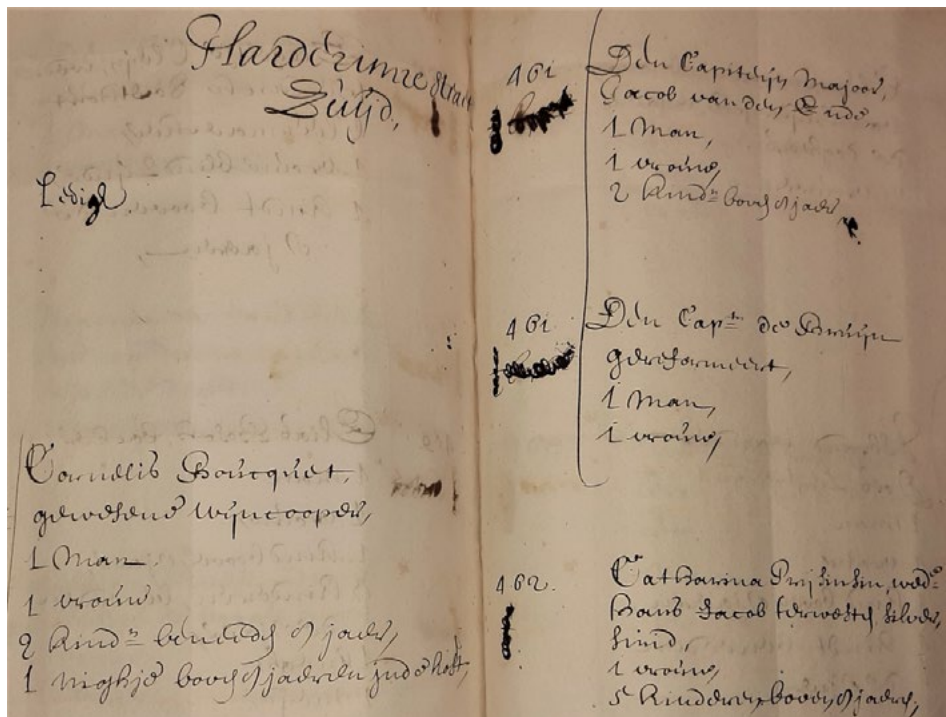 Harderinne straet
Zuijd,
Ledigh
Cornelis Boucquet,
gewesene wyncooper,
1 Man
1 vrouw
2 kindn beneedn 9 jaer,
1 nighje boven 9 jaeren
461
Den Capiteijn Majoor,
Jacob van den Ende,
1 Man,
1 vrouw,
2 kindn boven 9 jaer,
461
Den Captn de Bruijn
gereformeert,
1 Man,
1 vrouw,
462.
Catharina wede
Hans Jacob silver
smid,
1 vrouw,
5 kinderen boven 9 jaer,